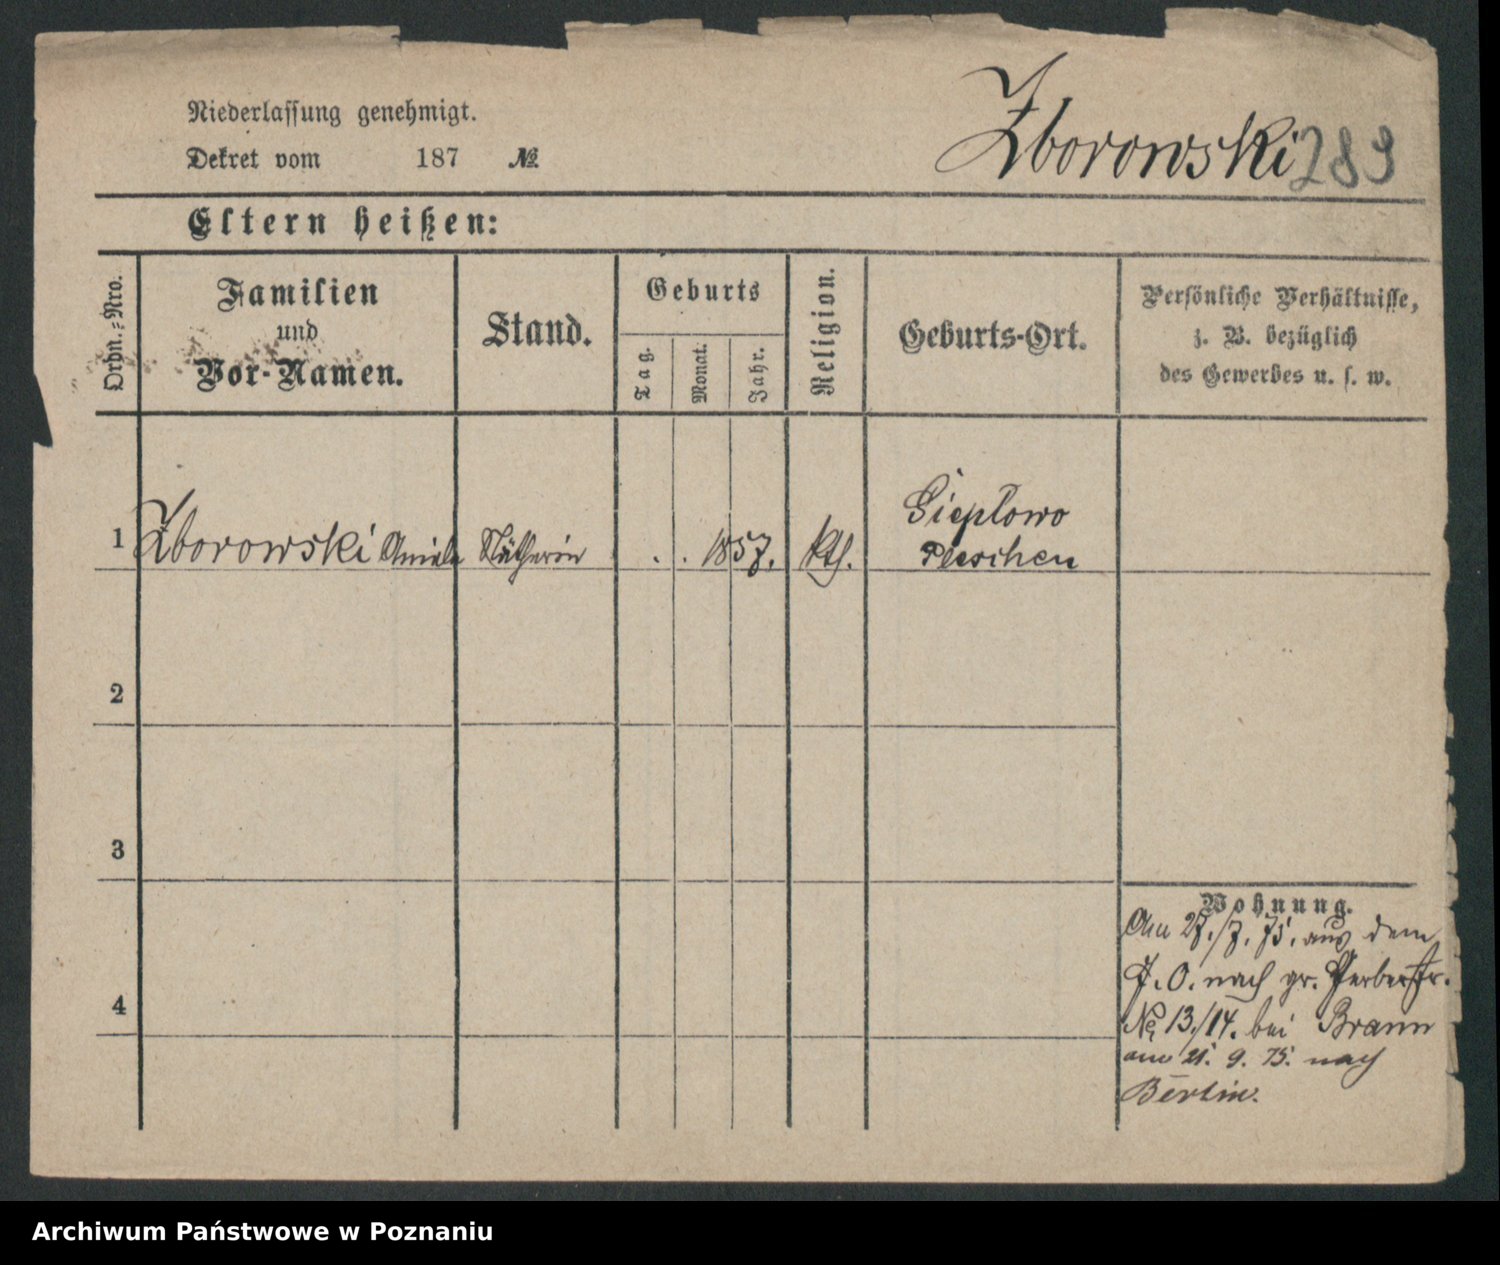 Niederlassung genehmigt.
Zborowski 289
Dekret vom 187 №
Eltern heißen:
Ordn.-Nro.
Familien
und
Vor-Namen.
Stand.
Geburts
Tag.
Monat.
Jahr.
Religion.
Geburts-Ort.
Persönliche Verhältnisse,
z. B. bezüglich
des Gewerbes u. s. w.
1 Zborowski Aniela Nätherin . . 1857. kth.
Pleschen
2
3
4
Wohnung.
Am 27./7. 75. aus dem
J. O. nach gr. Gerberstr.
№ 13./14. bei Brann
am 21. 9. 75. nach
Berlin.
Archiwum Państwowe w Poznaniu